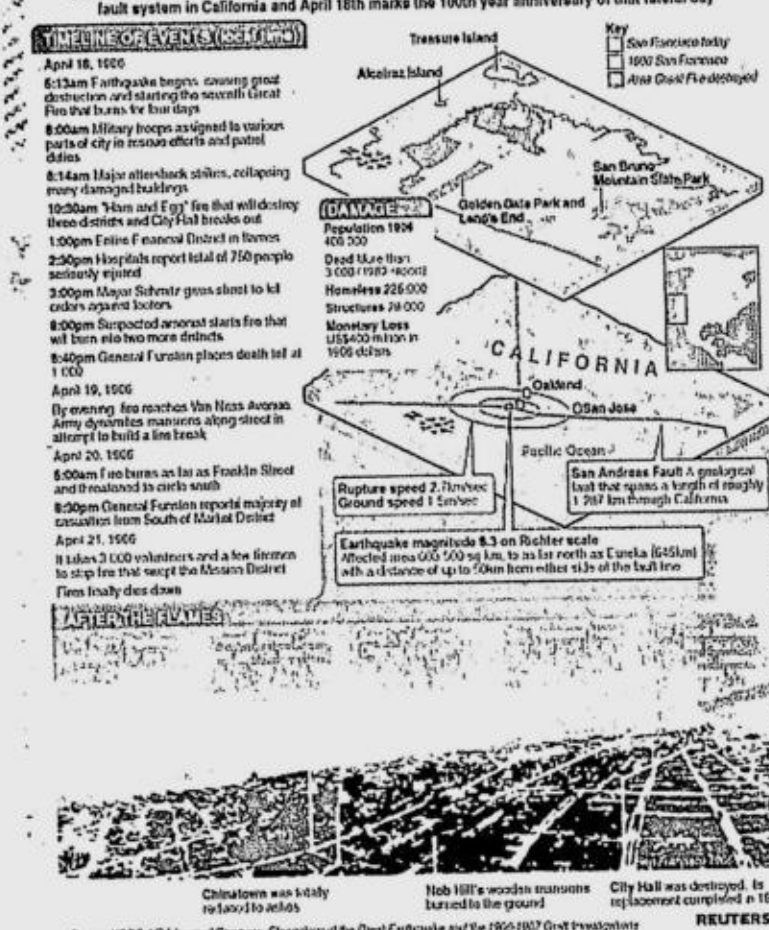 fault system in California and April 18th marks the 100th year anniversary of that fateful day
TIMELINE OF EVENTS (local time)
April 18, 1906
5:13am Earthquake begins causing great
destruction and starting the seventh Great
Fire that burns for four days
8:00am Military troops assigned to various
parts of city in rescue efforts and patrol
duties
8:14am Major aftershock strikes, collapsing
many damaged buildings
10:30am "Ham and Egg" fire that will destroy
three districts and City Hall breaks out
1:00pm Entire Financial District in flames
2:30pm Hospitals report total of 750 people
seriously injured
3:00pm Mayor Schmitz gives shoot to kill
orders against looters
8:00pm Suspected arsonist starts fire that
will burn into two more districts
8:40pm General Funston places death toll at
1 000
April 19, 1906
By evening fire reaches Van Ness Avenue
Army dynamites mansions along street in
attempt to build a fire break
April 20, 1906
5:00am Fire burns as far as Franklin Street
and threatened to circle south
8:30pm General Funston reports majority of
casualties from South of Market District
April 21, 1906
It takes 3 000 volunteers and a few firemen
to stop fire that swept the Mission District
Fires finally dies down
Treasure Island
Alcatraz Island
Key
San Francisco today
1906 San Francisco
Area Great Fire destroyed
San Bruno
Mountain State Park
Golden Gate Park and
Land's End
DAMAGE
Population 1906
400 000
Dead More than
3 000
Homeless 225 000
Structures 28 000
Monetary Loss
US$400 million in
1906 dollars
CALIFORNIA
Oakland
San Jose
Pacific Ocean
Rupture speed 2.7km/sec
Ground speed 1.5m/sec
San Andreas Fault A geological
fault that spans a length of roughly
1 287 km through California
Earthquake magnitude 8.3 on Richter scale
Affected area sq km, to as far north as Eureka
with a distance of up to 50km from either side of the fault line
AFTER THE FLAMES
Chinatown was totally
reduced to ashes
Nob Hill's wooden mansions
burned to the ground
City Hall was destroyed. Is
replacement completed in
REUTERS